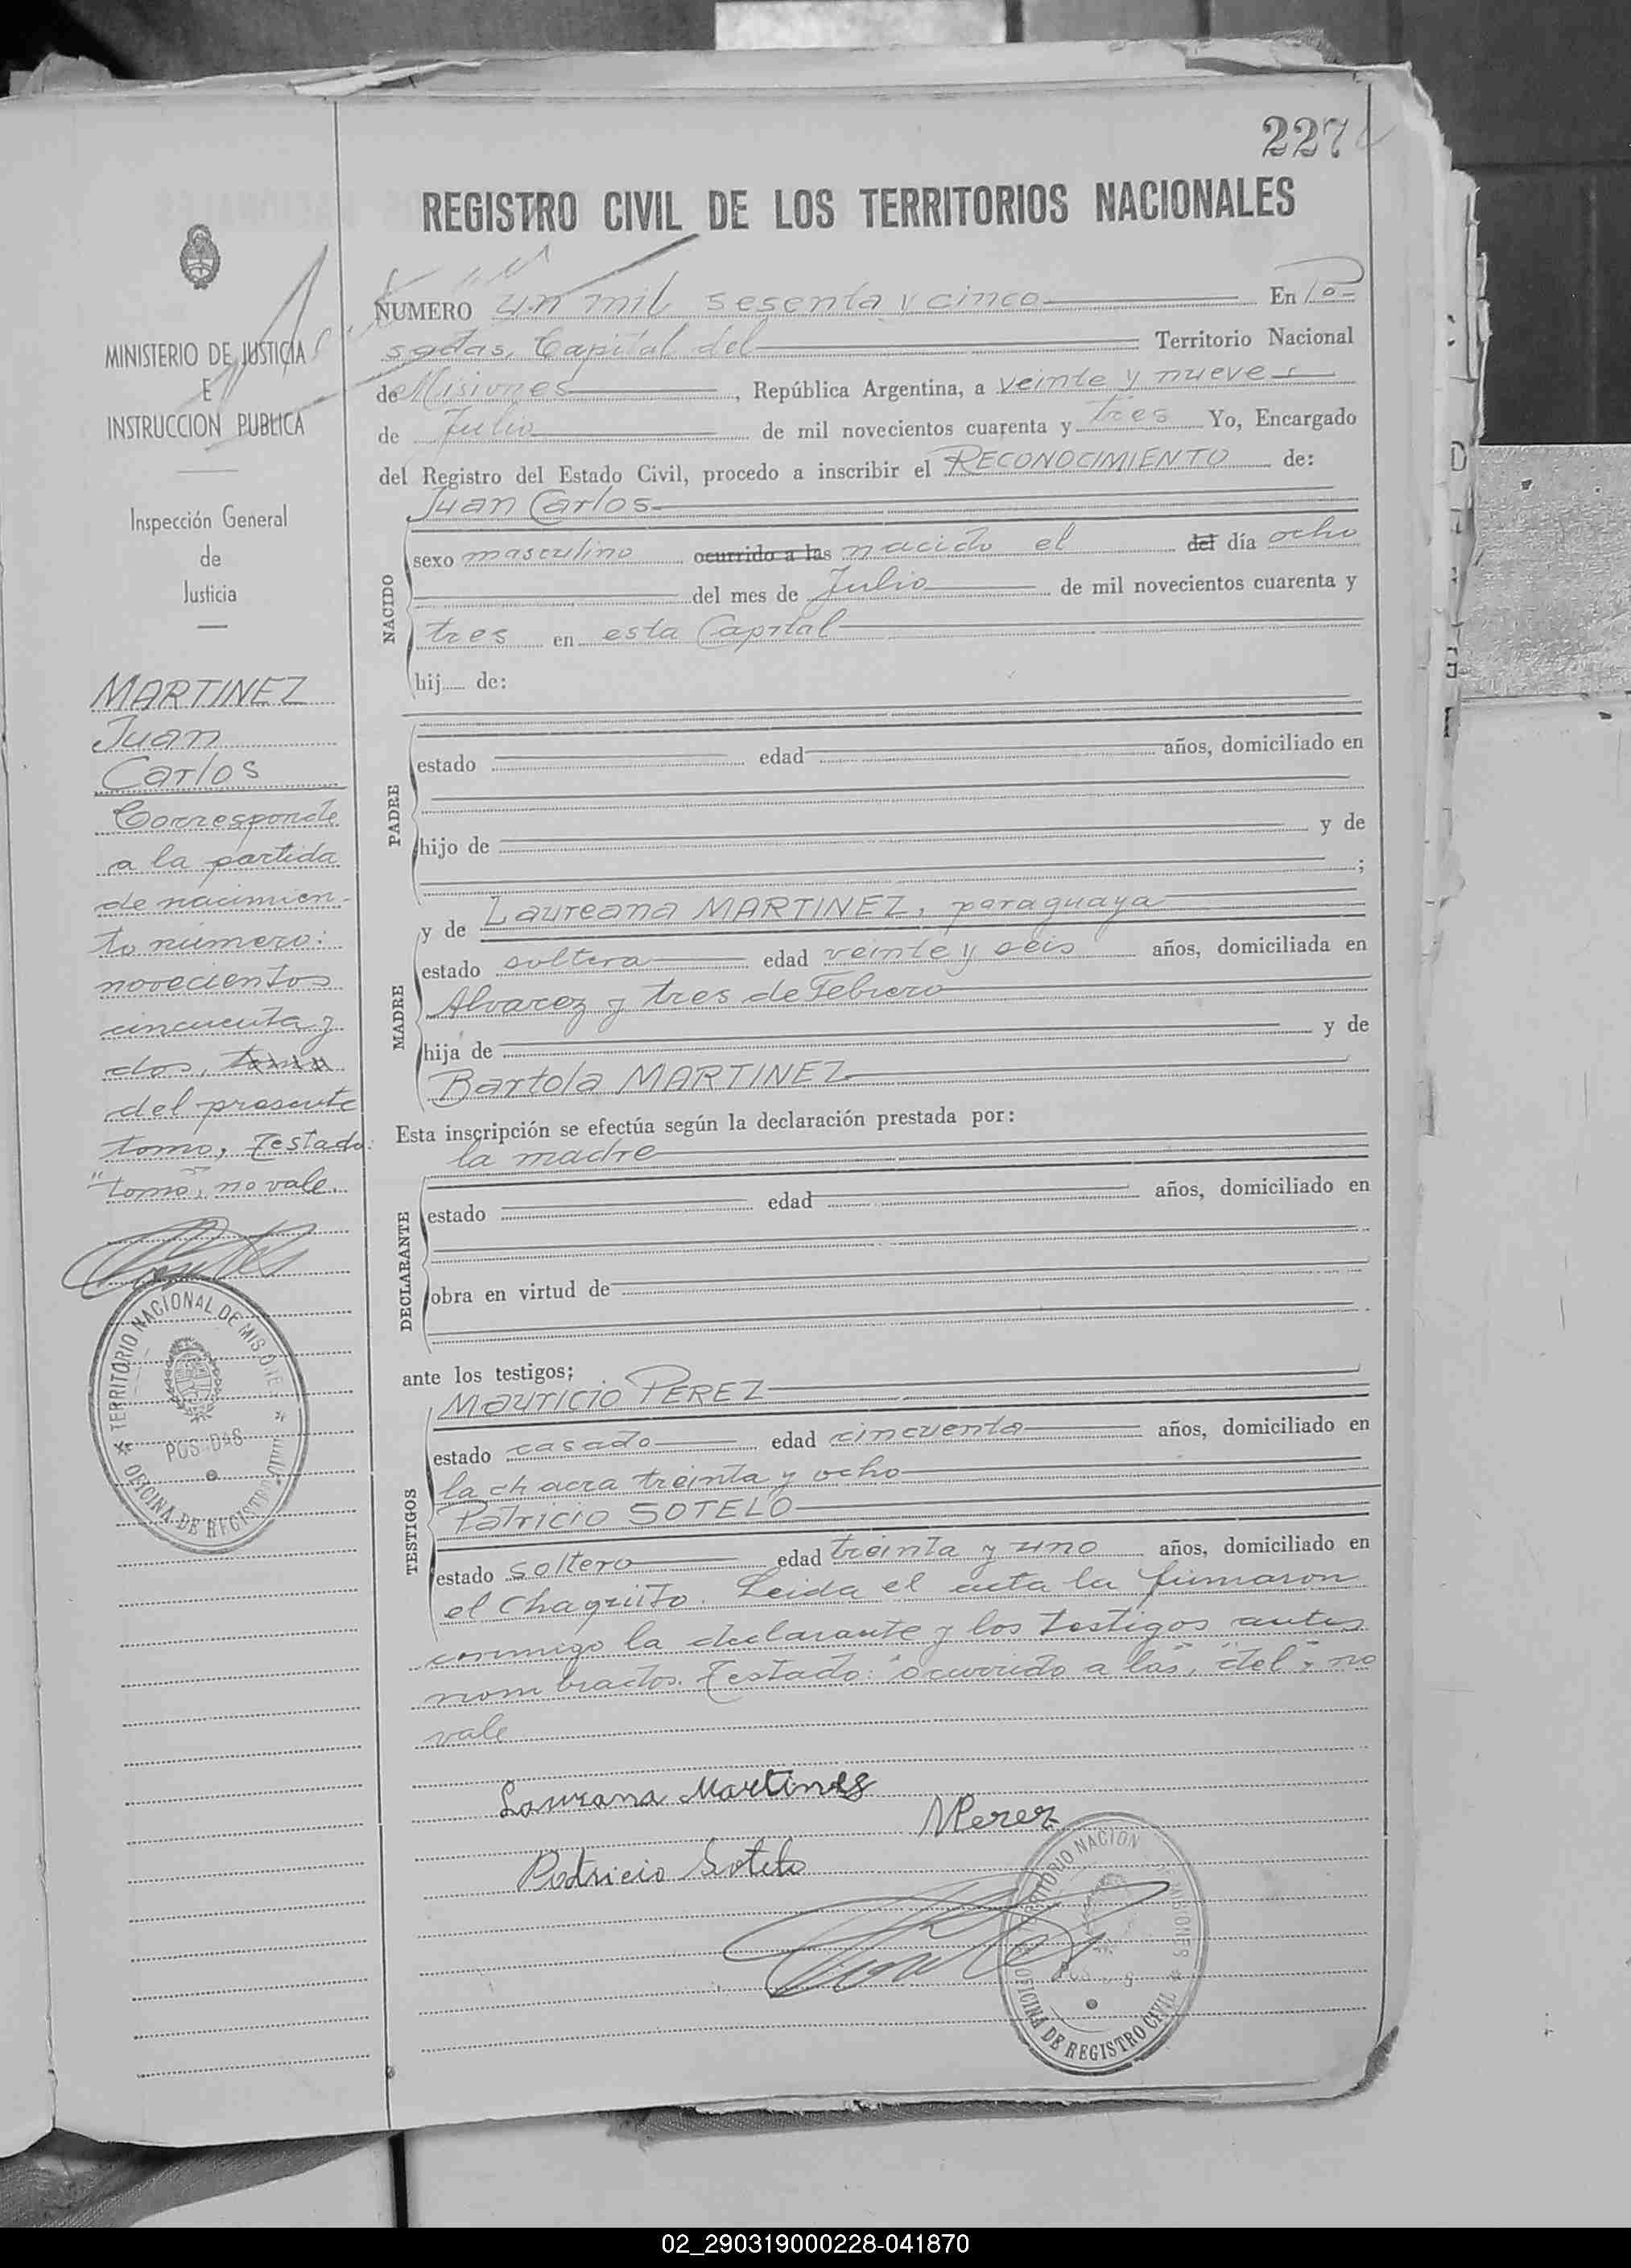 227
REGISTRO CIVIL DE LOS TERRITORIOS NACIONALES
MINISTERIO DE JUSTICIA
E
INSTRUCCION PUBLICA
Inspección General
de
Justicia
MARTINEZ
Juan
Carlos
Corresponde
a la partida
de nacimien-
to número:
novecientos
cincuenta y
dos, tomo
del presente
tomo, Testado:
"tomo", no vale.
TERRITORIO NACIONAL DE MISIONES
POSADAS
OFICINA DE REGISTRO CIVIL
NUMERO un mil sesenta y cinco En Po-
sadas, Capital del Territorio Nacional
de Misiones, República Argentina, a veinte y nueve
de Julio de mil novecientos cuarenta y tres Yo, Encargado
del Registro del Estado Civil, procedo a inscribir el RECONOCIMIENTO de:
Juan Carlos
NACIDO
sexo masculino ocurrido a las nacido el del día ocho
del mes de Julio de mil novecientos cuarenta y
tres en esta Capital
hij de:
PADRE
estado edad años, domiciliado en
hijo de y de
;
MADRE
y de Laureana MARTINEZ, paraguaya
estado soltera edad veinte y seis años, domiciliada en
Alvarez y tres de Febrero
hija de y de
Bartola MARTINEZ
Esta inscripción se efectúa según la declaración prestada por:
la madre
DECLARANTE
estado edad años, domiciliado en
obra en virtud de
ante los testigos;
TESTIGOS
Mauricio PEREZ
estado casado edad cincuenta años, domiciliado en
la chacra treinta y ocho
Patricio SOTELO
estado soltero edad treinta y uno años, domiciliado en
el Chaquito. Leida el acta la firmaron
conmigo la declarante y los testigos antes
nombrados. Testado: "ocurrido a las", "del" - no
vale
Laureana Martines
MPerez
Patricio Sotelo
TERRITORIO NACIONAL DE MISIONES
OFICINA DE REGISTRO CIVIL
02_290319000228-041870